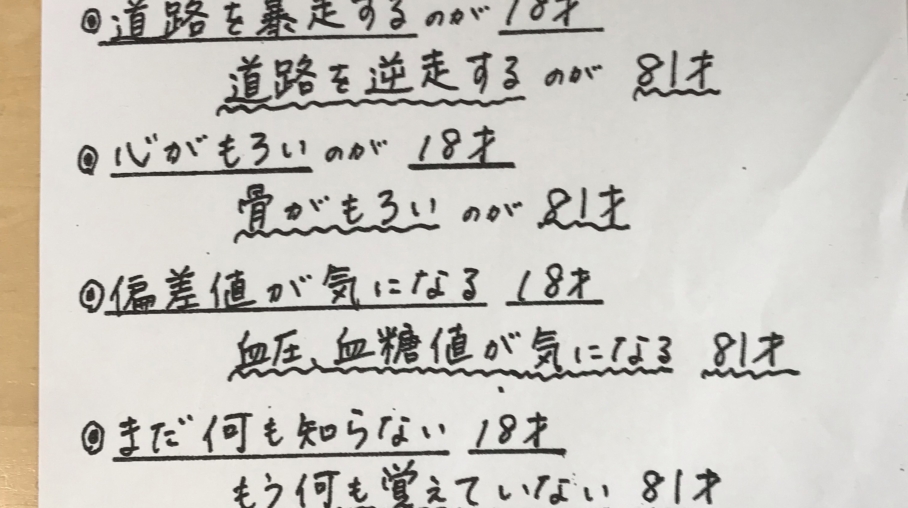 ◎道路を暴走するのが 18才
道路を逆走するのが 81才
◎心がもろいのが 18才
骨がもろいのが 81才
◎偏差値が気になる 18才
血圧、血糖値が気になる 81才
◎まだ何も知らない 18才
もう何も覚えていない 81才